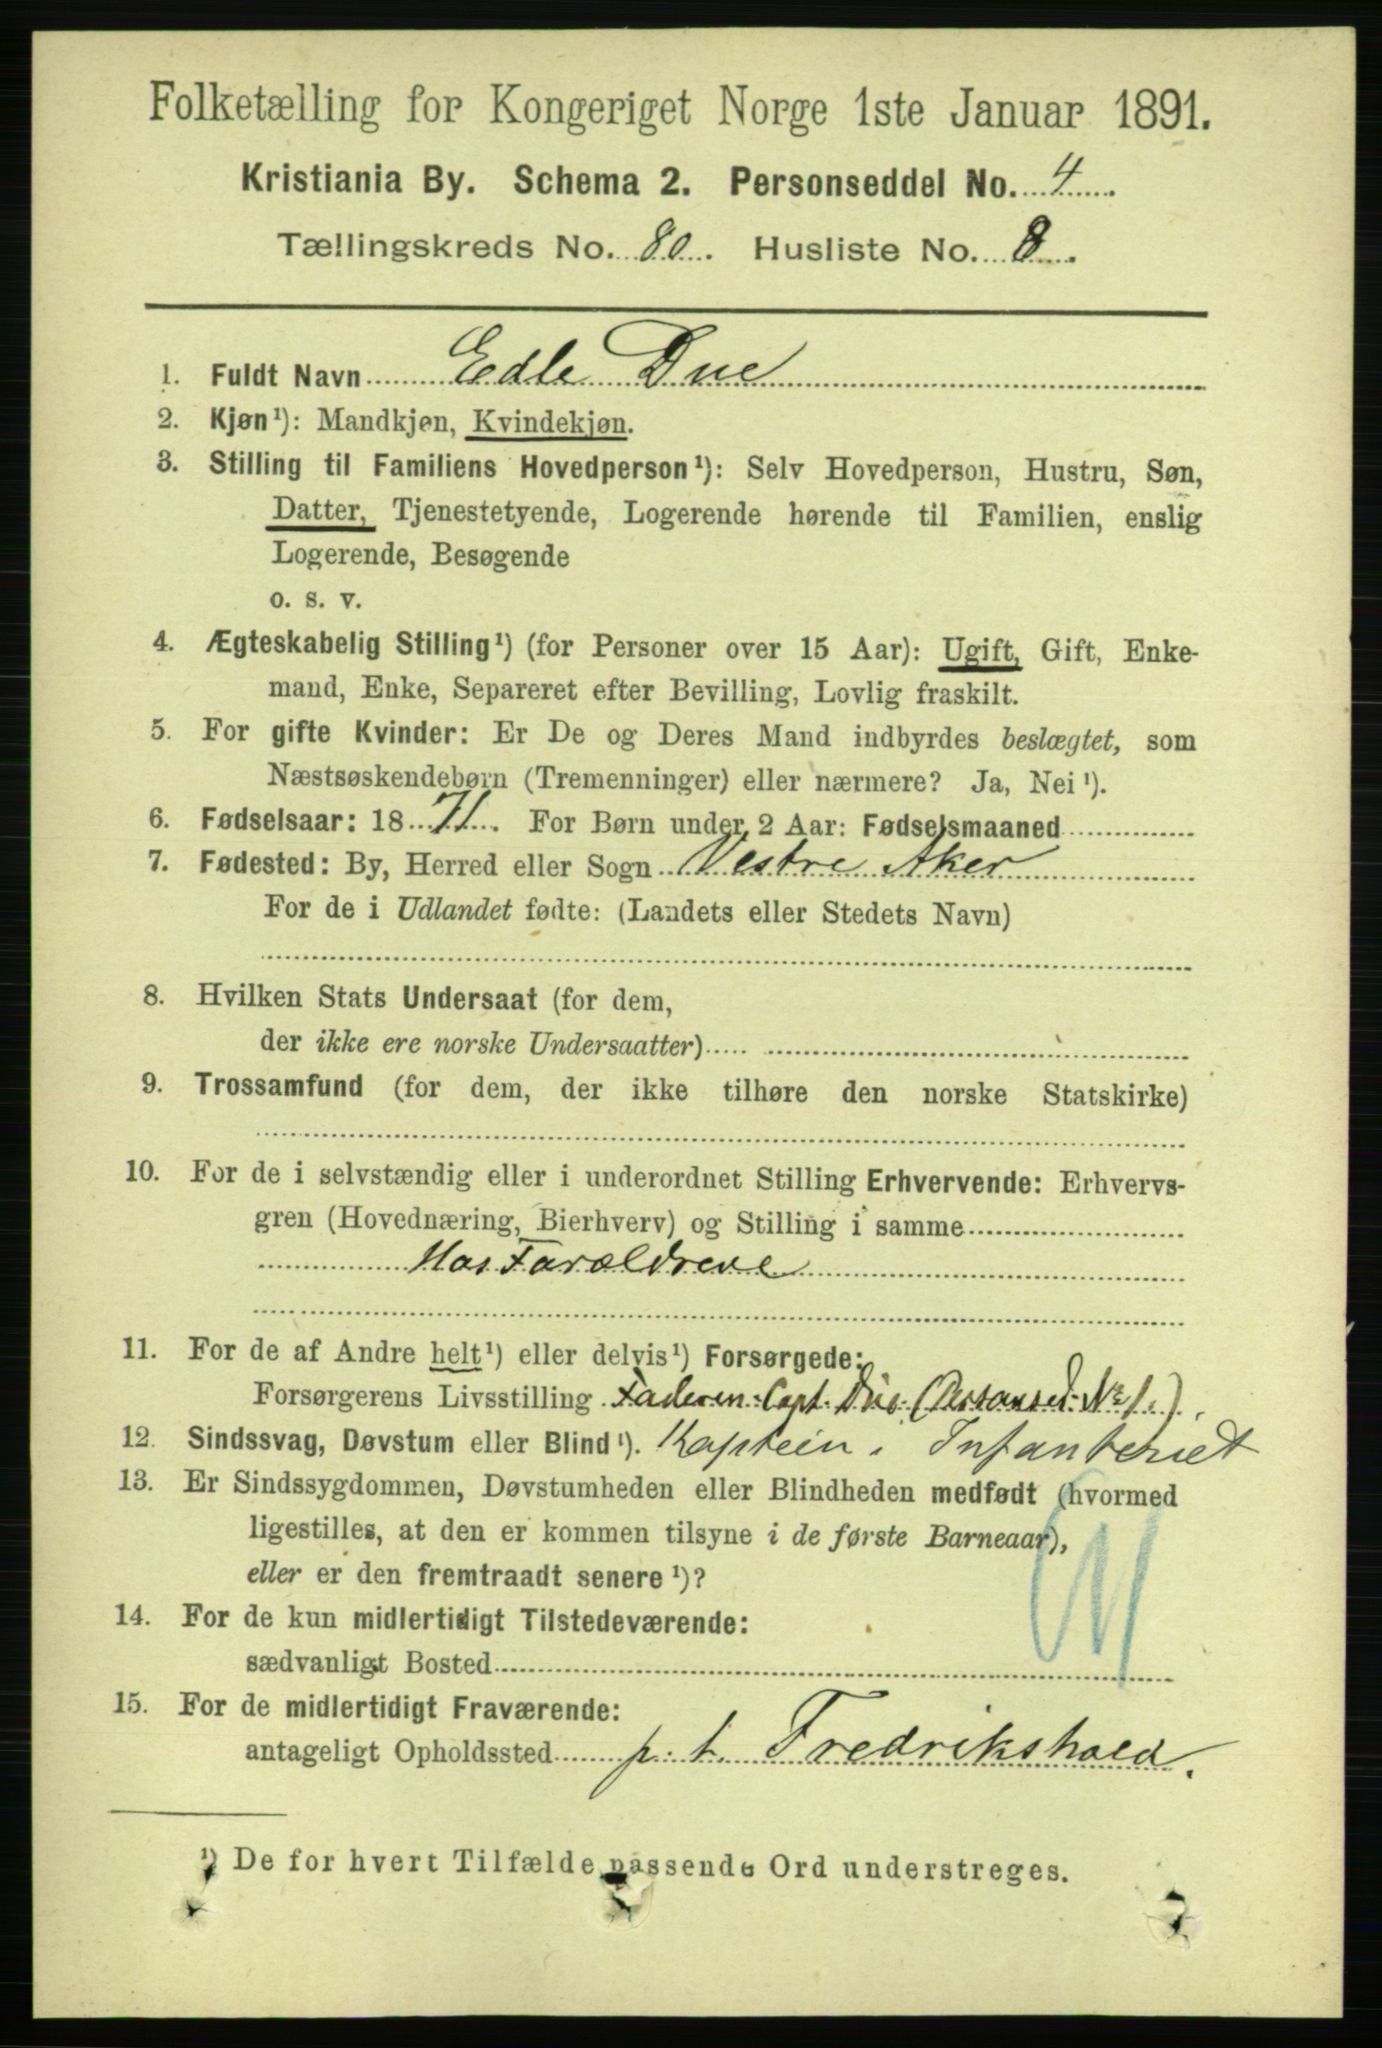 Folketælling for Kongeriget Norge 1ste Januar 1891.
Kristiania By. Schema 2. Personseddel No. 4
Tællingskreds No. 80. Husliste No. 8.
1. Fuldt Navn Edle Due
2. Kjøn¹): Mandkjøn, Kvindekjøn.
3. Stilling til Familiens Hovedperson¹): Selv Hovedperson, Hustru, Søn,
Datter, Tjenestetyende, Logerende hørende til Familien, enslig
Logerende, Besøgende
o. s. v.
4. Ægteskabelig Stilling¹) (for Personer over 15 Aar): Ugift, Gift, Enke-
mand, Enke, Separeret efter Bevilling, Lovlig fraskilt.
5. For gifte Kvinder: Er De og Deres Mand indbyrdes beslægtet, som
Næstsøskendebørn (Tremenninger) eller nærmere? Ja, Nei¹).
6. Fødselsaar: 1871. For Børn under 2 Aar: Fødselsmaaned
7. Fødested: By, Herred eller Sogn Vestre Aker
For de i Udlandet fødte: (Landets eller Stedets Navn)
8. Hvilken Stats Undersaat (for dem,
der ikke ere norske Undersaatter)
9. Trossamfund (for dem, der ikke tilhøre den norske Statskirke)
10. For de i selvstændig eller i underordnet Stilling Erhvervende: Erhvervs-
gren (Hovednæring, Bierhverv) og Stilling i samme
Hos Forældrene
11. For de af Andre helt¹) eller delvis¹) Forsørgede:
Forsørgerens Livsstilling Faderen: Capt. Due (Personsed. No 1.).
12. Sindssvag, Døvstum eller Blind¹). Kaptein i Infanteriet
13. Er Sindssygdommen, Døvstumheden eller Blindheden medfødt (hvormed
ligestilles, at den er kommen tilsyne i de første Barneaar),
eller er den fremtraadt senere¹)?
14. For de kun midlertidigt Tilstedeværende:
sædvanligt Bosted
15. For de midlertidigt Fraværende:
antageligt Opholdssted p. t. Fredrikshald.
¹) De for hvert Tilfælde passende Ord understreges.